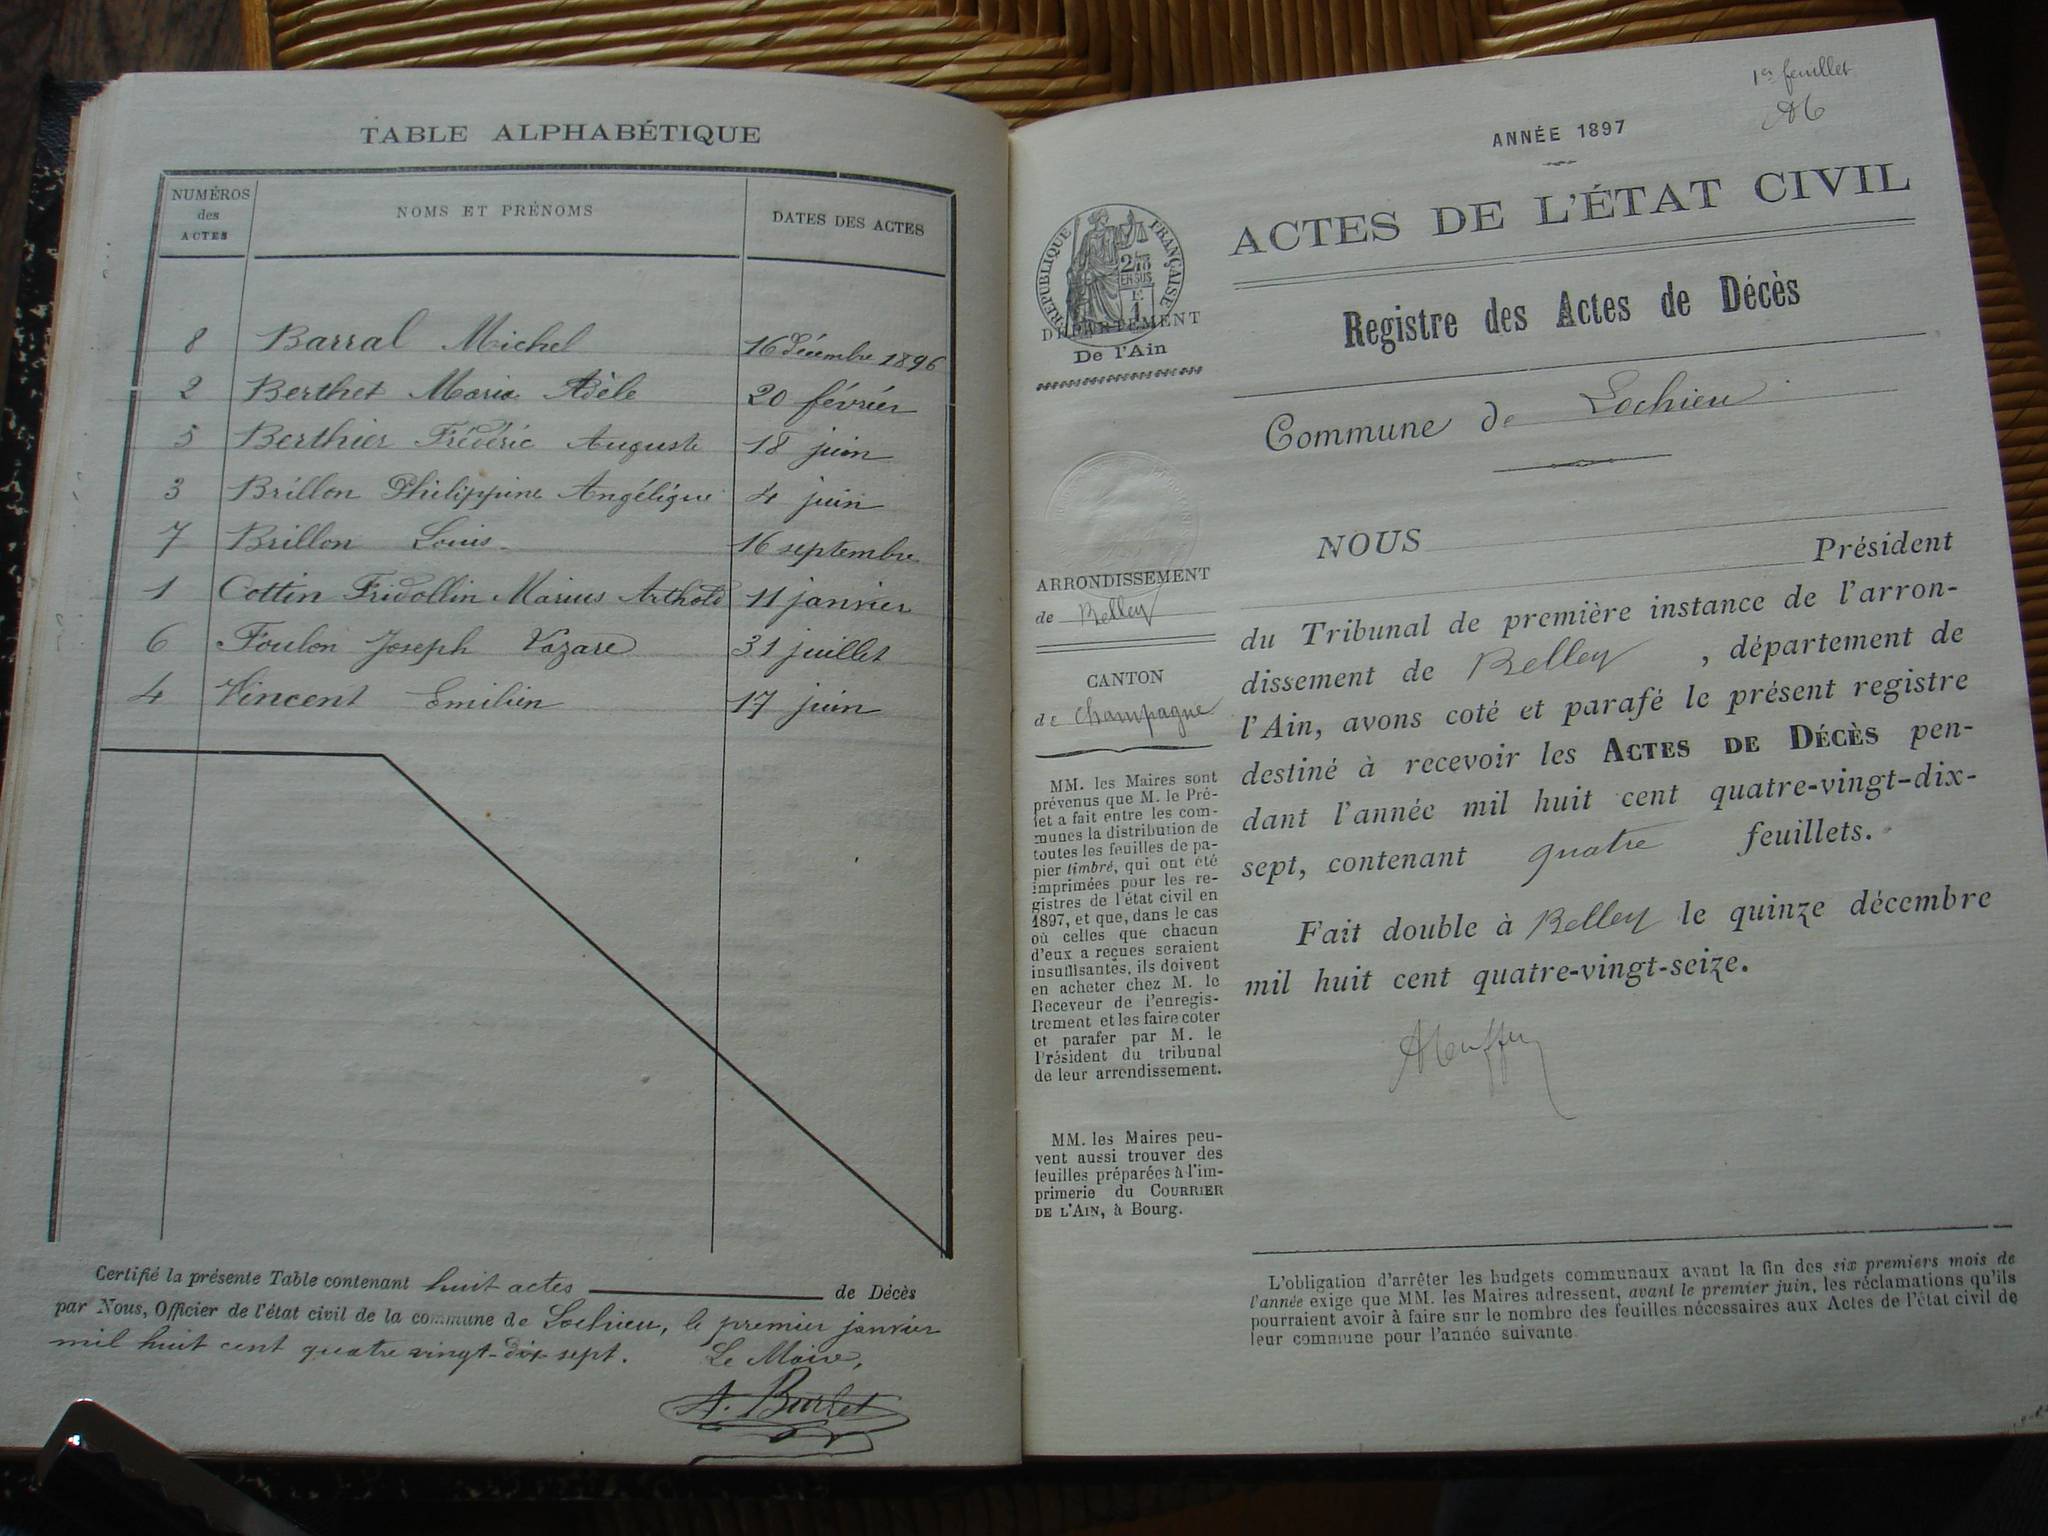 TABLE ALPHABÉTIQUE
NUMÉROS des ACTES
NOMS ET PRÉNOMS
DATES DES ACTES
8 Barral Michel 16 décembre 1896
2 Berthet Maria Adèle 20 février
5 Berthier Frédéric Auguste 18 juin
3 Brillon Philippine Angélique 4 juin
7 Brillon Louis 16 septembre
1 Cottin Fridollin Marius Arthold 11 janvier
6 Foulon Joseph Lazare 31 juillet
4 Vincent Emilien 17 juin
Certifié la présente Table contenant huit actes de Décès
par Nous, Officier de l'état civil de la commune de Lochieu, le premier janvier
mil huit cent quatre vingt-dix-sept. Le Maire,
A. Burlet
1er feuillet
ANNÉE 1897
ACTES DE L'ÉTAT CIVIL
RÉPUBLIQUE FRANÇAISE
2/10
EN SUS
DÉPARTEMENT
De l'Ain
Registre des Actes de Décès
Commune de Lochieu
ARRONDISSEMENT
de Belley
CANTON
de Champagne
MM. les Maires sont
prévenus que M. le Pré-
fet a fait entre les com-
munes la distribution de
toutes les feuilles de pa-
pier timbré, qui ont été
imprimées pour les re-
gistres de l'état civil en
1897, et que, dans le cas
où celles que chacun
d'eux a reçues seraient
insuffisantes, ils doivent
en acheter chez M. le
Receveur de l'enregis-
trement et les faire coter
et parafer par M. le
Président du tribunal
de leur arrondissement.
MM. les Maires peu-
vent aussi trouver des
feuilles préparées à l'im-
primerie du COURRIER
DE L'AIN, à Bourg.
NOUS
Président
du Tribunal de première instance de l'arron-
dissement de Belley, département de
l'Ain, avons coté et parafé le présent registre
destiné à recevoir les ACTES DE DÉCÈS pen-
dant l'année mil huit cent quatre-vingt-dix-
sept, contenant quatre feuillets.
Fait double à Belley le quinze décembre
mil huit cent quatre-vingt-seize.
L'obligation d'arrêter les budgets communaux avant la fin des six premiers mois de
l'année exige que MM. les Maires adressent, avant le premier juin, les réclamations qu'ils
pourraient avoir à faire sur le nombre des feuilles nécessaires aux Actes de l'état civil de
leur commune pour l'année suivante